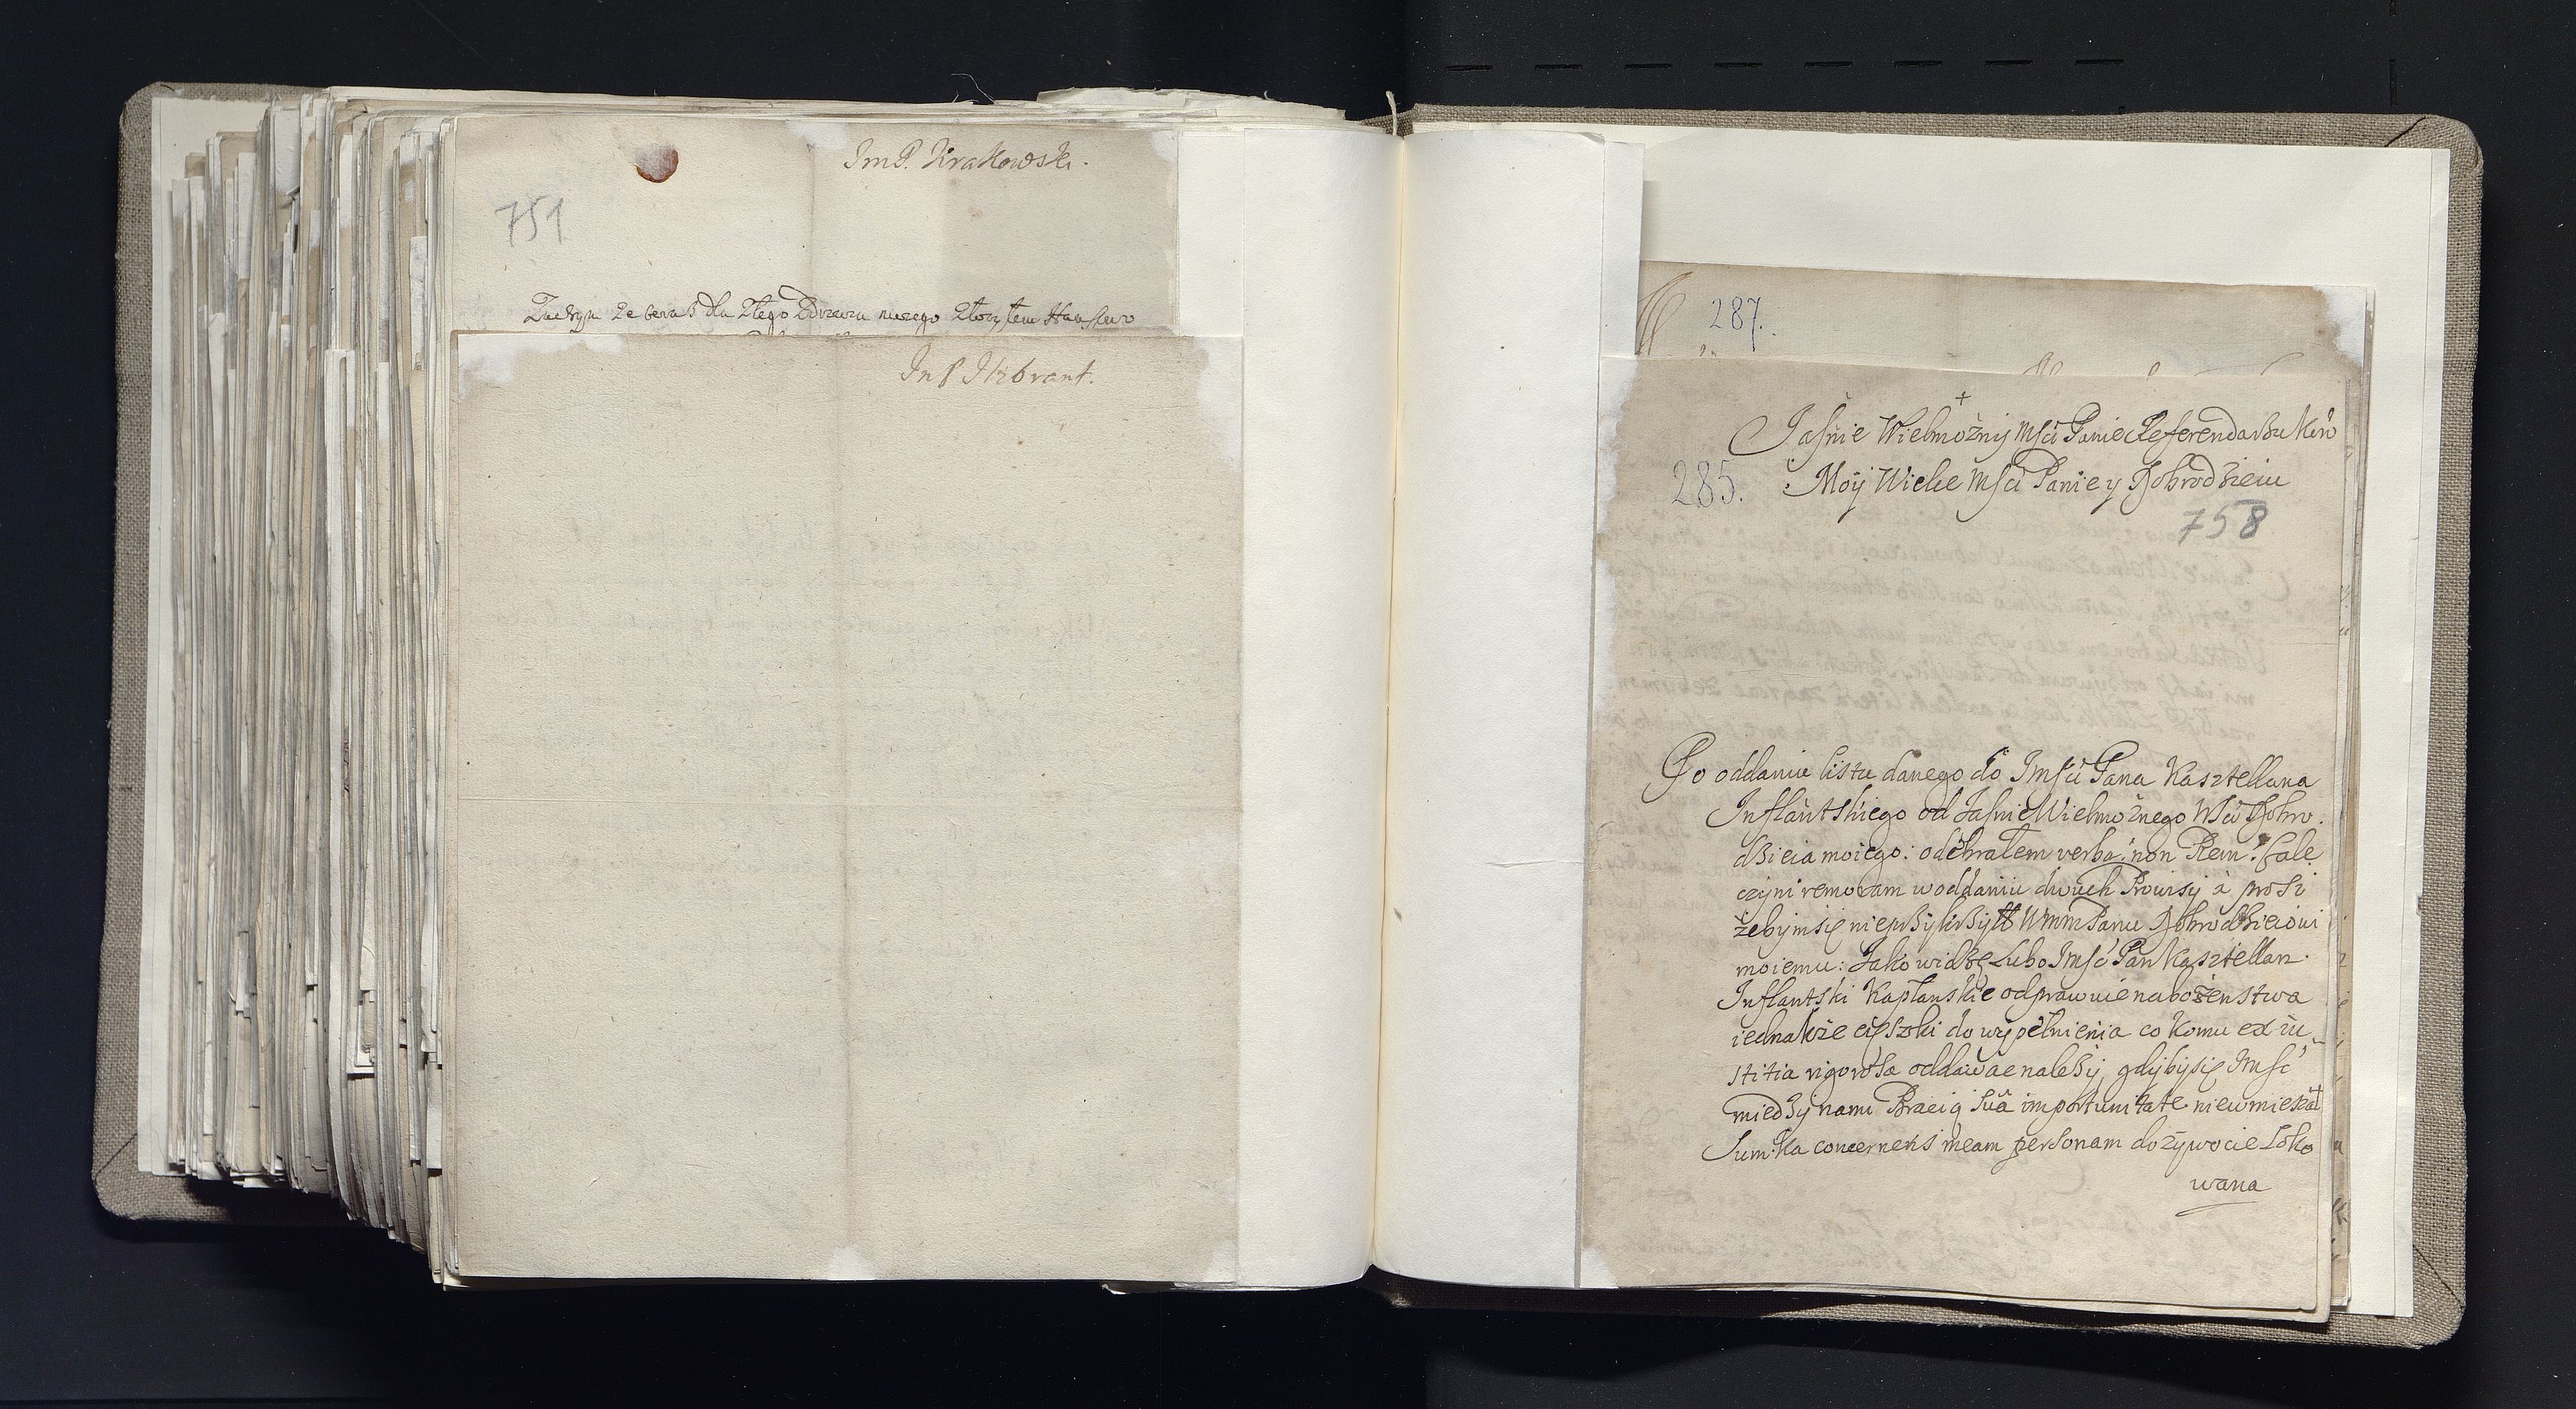 ImP. Krakowski.
751
Zadzym ze teras dla złego Zdrowia mego
In P Ilsbrant.
287.
+
Jasnie Wielmożnij Msći Panie Referendarzu Kor̃
285. Mój Wielce Msći Panie y Dobrodzieiu
758
Po oddaniu listu danego do Imsći Pana Kasztellana
Inflantskiego od Jasnie Wielmożnego WSći Dobro.
dzieia moiego: odebrałem verba: non Rem:
czyni remoram w oddaniu dwuch Prowisy à prosi
żebym się nieprzykrzył WmmPanu Dobrodzieiowi
moiemu: Jako widzę Lubo Imsć Pan Kasztellan
Inflantski Kapłanskie odprawuie nabożenstwa
iednakże cięszki do wypełnienia co komu ex iu
stitia rigorosa oddawac nalezy, gdyby się Imsć
miedzy nami Bracią suâ importunitate niewmieszał
Sumka concernens meam personam dożywocie loko
wana